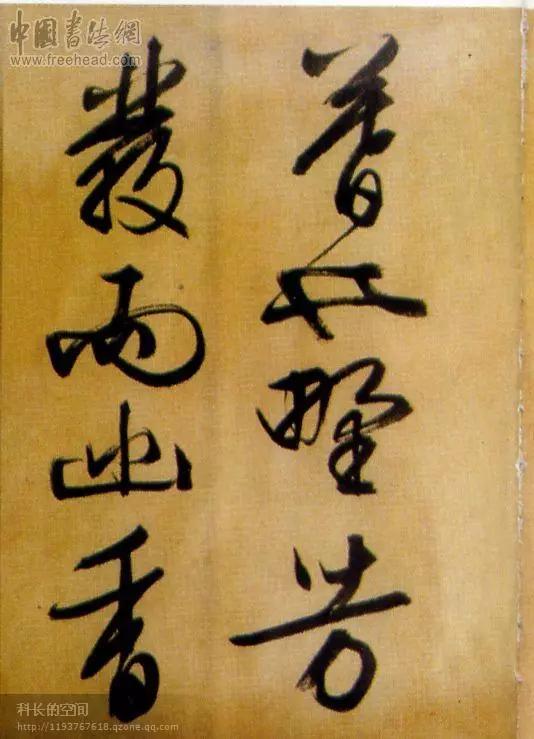 中國書法網
www.freehead.com
暮也野芳
發而幽香
科长的空间
http://1193767618.qzone.qq.com